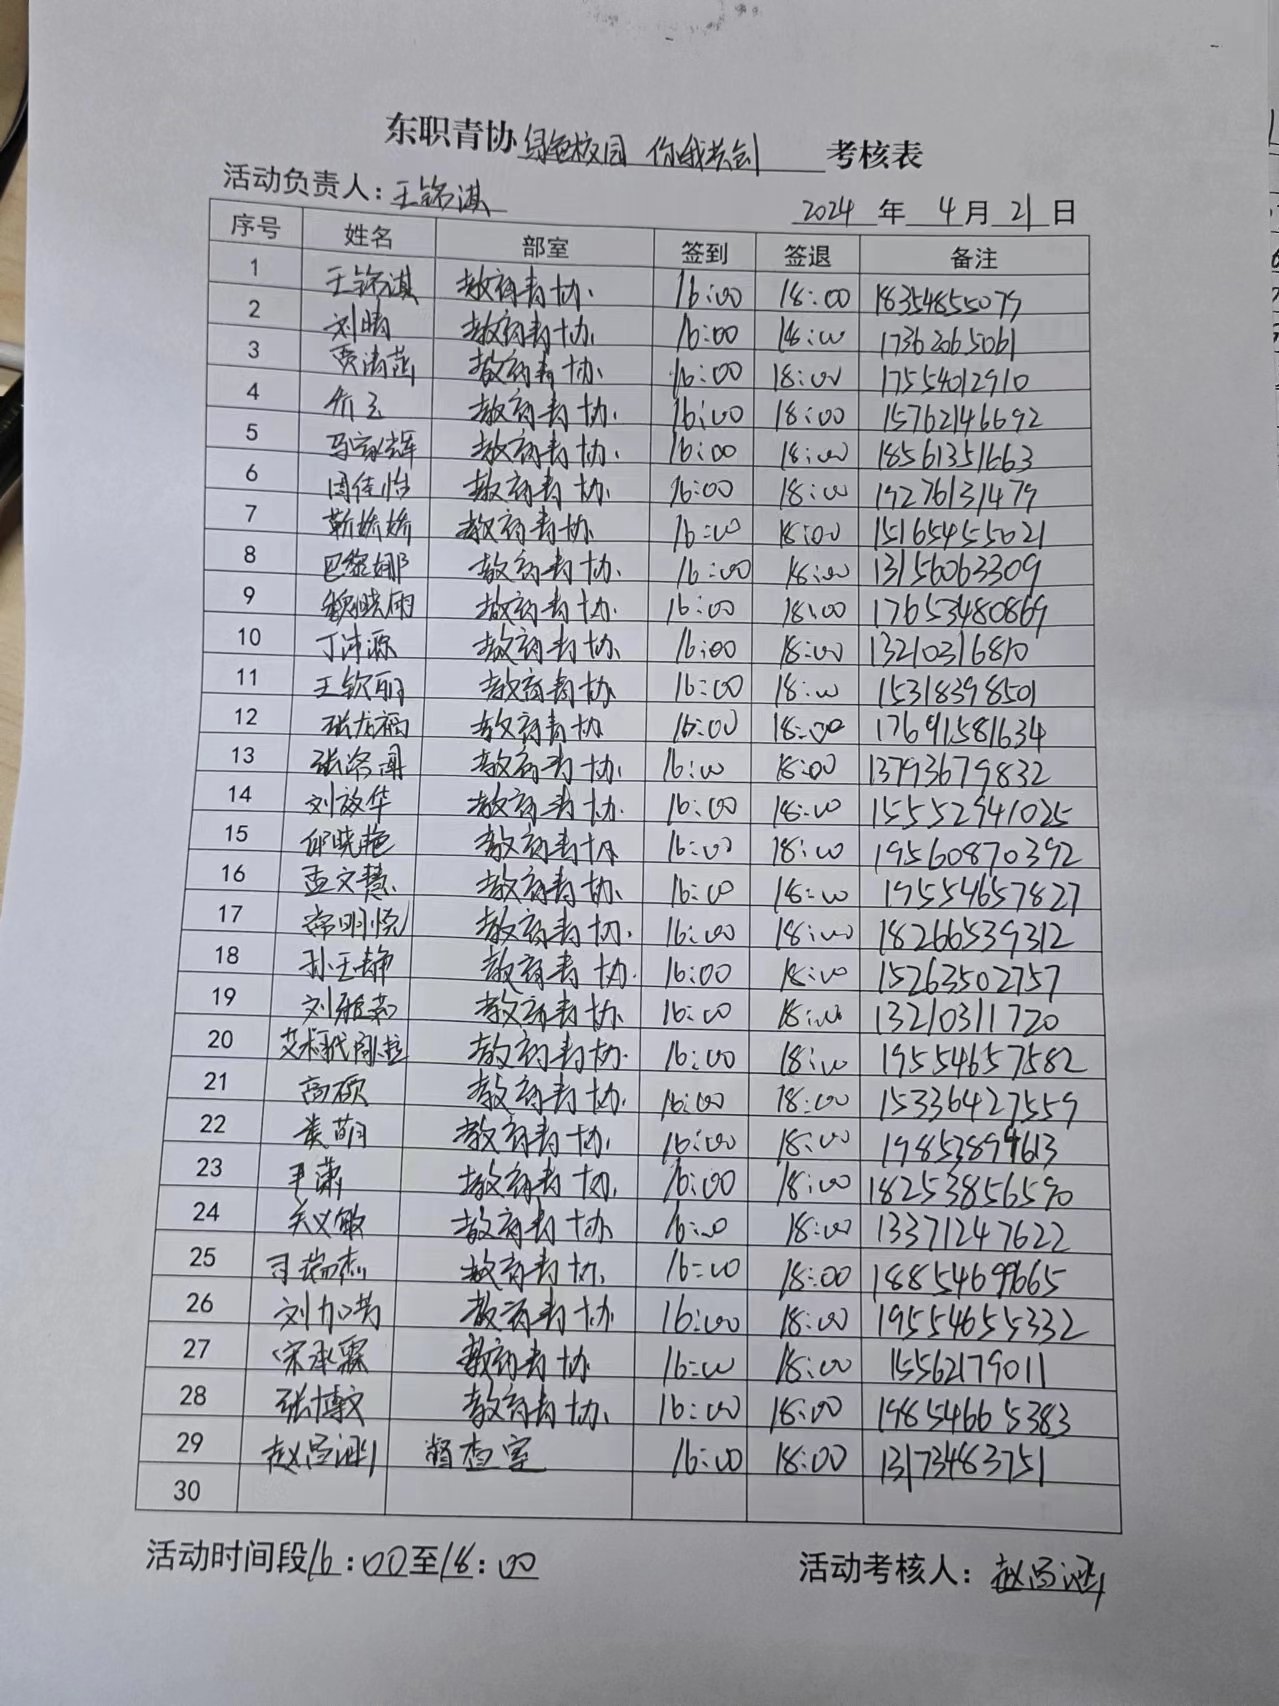 东职青协绿色校园 你我共创考核表
活动负责人：王锦淇 2024年4月21日
序号 姓名 部室 签到 签退 备注
1 王锦淇 教育青协 16:00 18:00 18354855079
2 刘晴 教育青协 16:00 18:00 17362065061
3 贾清菡 教育青协 16:00 18:00 17554012910
4 教育青协 16:00 18:00 15762146692
5 马家辉 教育青协 16:00 18:00 18561351663
6 周佳怡 教育青协 16:00 18:00 19276131479
7 靳娇娇 教育青协 16:00 18:00 15165455021
8 巴黎娜 教育青协 16:00 18:00 13156063309
9 魏晓雨 教育青协 16:00 18:00 17653480869
10 丁沛源 教育青协 16:00 18:00 13210316810
11 王钦丽 教育青协 16:00 18:00 15318398501
12 张龙福 教育青协 16:00 18:00 17691581634
13 教育青协 16:00 18:00 13793679832
14 刘放华 教育青协 16:00 18:00 15552941025
15 邱晓艳 教育青协 16:00 18:00 19560870392
16 孟文慧 教育青协 16:00 18:00 19554657827
17 常明悦 教育青协 16:00 18:00 18266539312
18 孙玉静 教育青协 16:00 18:00 15263502757
19 刘雅茹 教育青协 16:00 18:00 13210311720
20 教育青协 16:00 18:00 19554657582
21 高硕 教育青协 16:00 18:00 15336427559
22 娄萌 教育青协 16:00 18:00 19853899613
23 教育青协 16:00 18:00 18253856590
24 关义敏 教育青协 16:00 18:00 13371247622
25 司瑞杰 教育青协 16:00 18:00 18854699665
26 刘加尚 教育青协 16:00 18:00 19554655332
27 宋承霖 教育青协 16:00 18:00 15562179011
28 张博文 教育青协 16:00 18:00 19854665383
29 督查室 16:00 18:00 13173483751
30
活动时间段16:00至18:00 活动考核人：